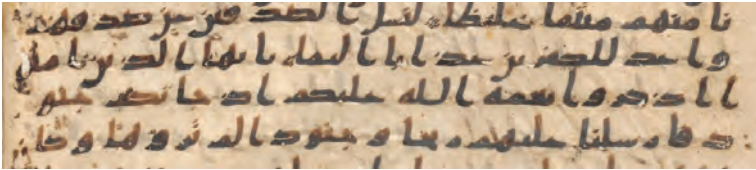 نا منهم ميثقا غليظا ليسل الصدقين عن صدقهم
واعد للكفرين عذابا اليما يايها الذين امنو
ا اذكروا نعمه الله عليكم اذ جاتكم جنو
د فارسلنا عليهم ريحا وجنودا لم تروها وكا